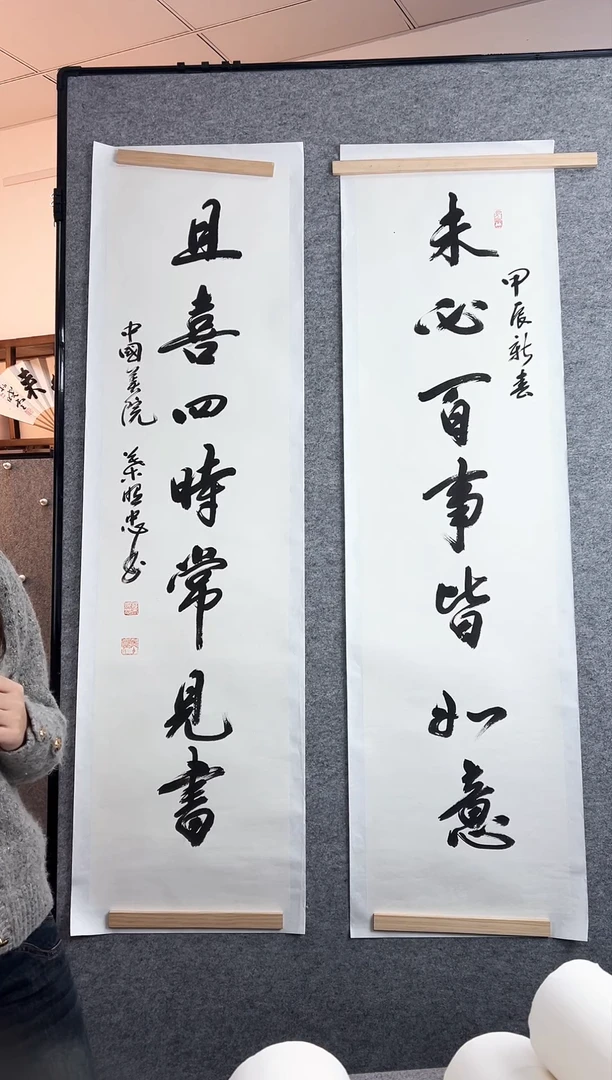 未必百事皆如意
甲辰新春
且喜四時常見書
中國美院
昭忠书